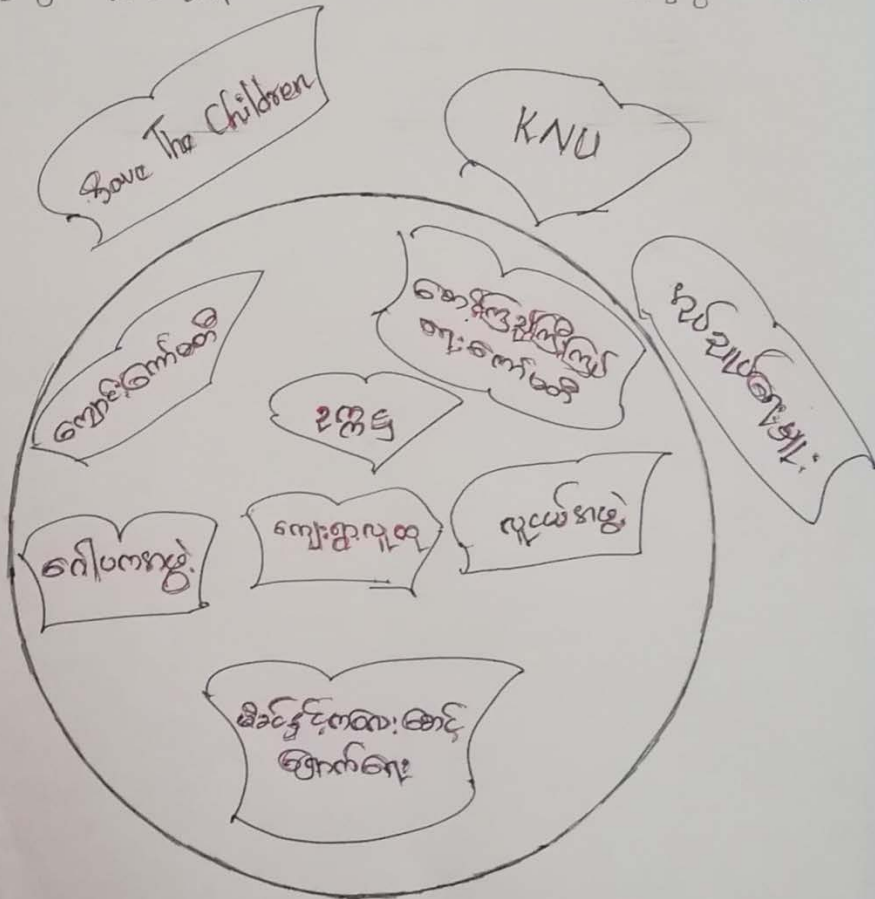 Save The Children
KNU
ကျောင်းကော်မတီ
စောင့်ကြည့်ကြီးကြပ်
ရေးကော်မတီ
ဥက္ကဋ္ဌ
ဂေါပကအဖွဲ့
ကျေးရွာလူထု
လူငယ်အဖွဲ့
မိခင်နှင့်ကလေးစောင့်
ရှောက်ရေး